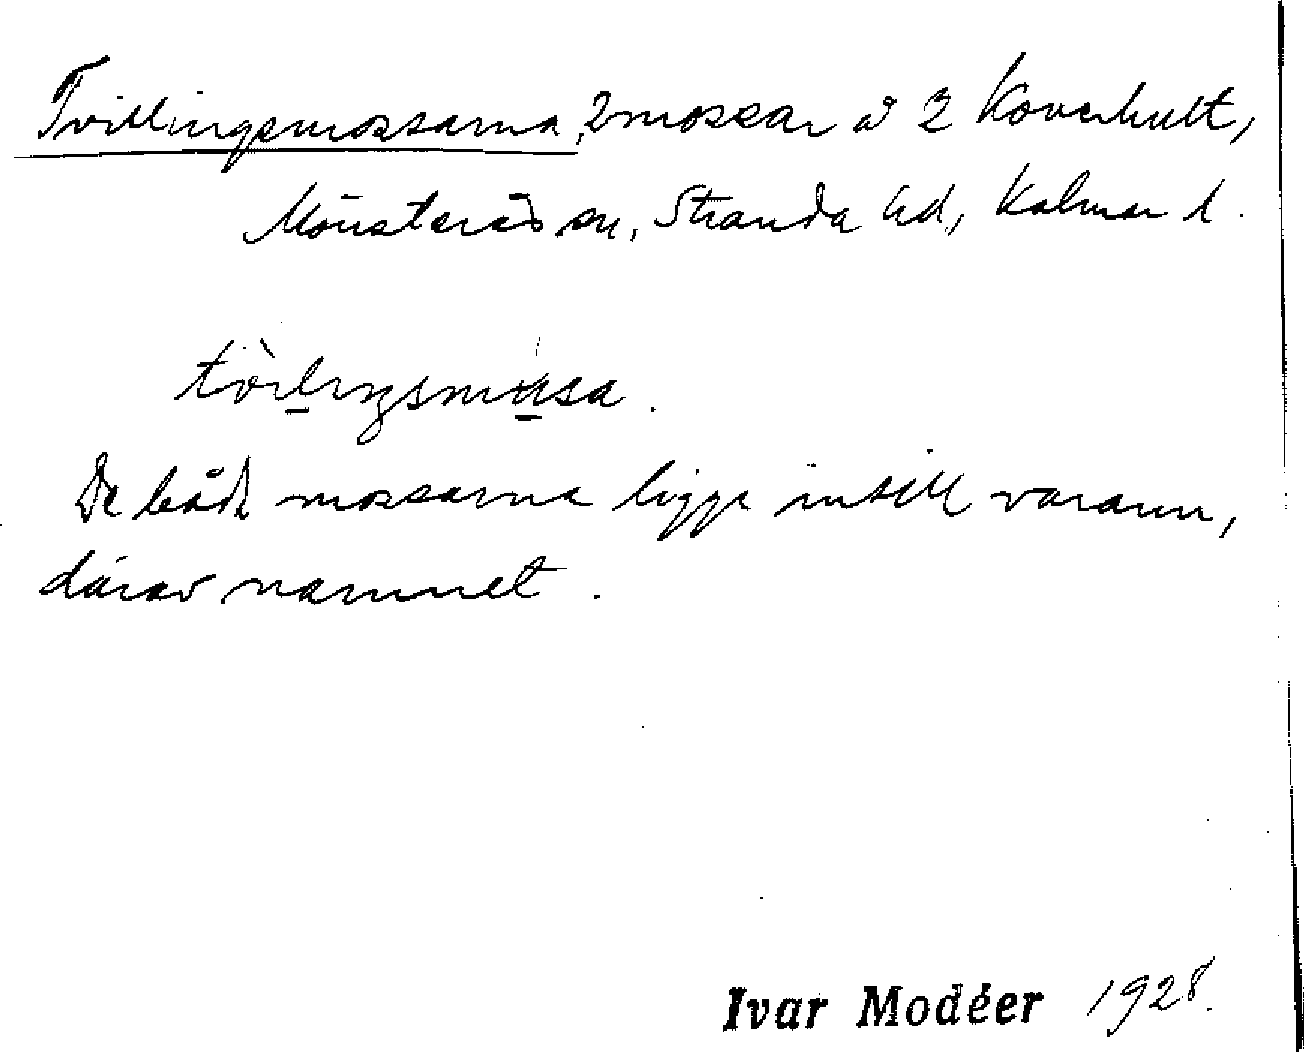 Tvillingsmossarna, 2 mossar å 2 Koverhult,
Mönsterås sn, Stranda hd, Kalmar l.
De båda mossarna ligga intill varann,
därav namnet.
Ivar Modéer 1928.